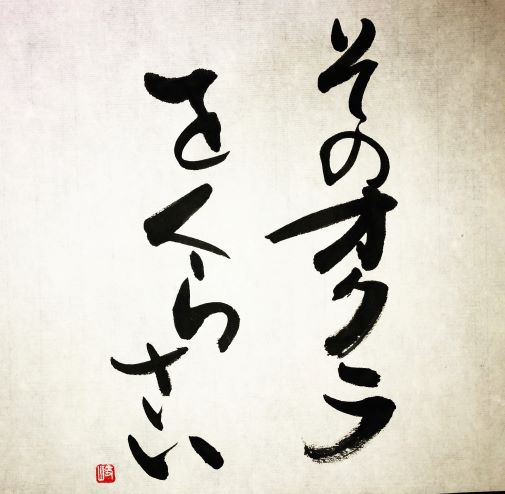 そのオクラ
をくらさい